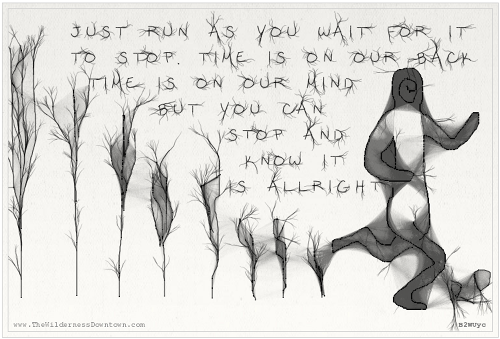 JUST RUN AS YOU WAIT FOR IT
TO STOP. TIME IS ON OUR BACK
TIME IS ON OUR MIND
BUT YOU CAN
STOP AND
KNOW IT
IS ALLRIGHT
www.TheWildernessDowntown.com